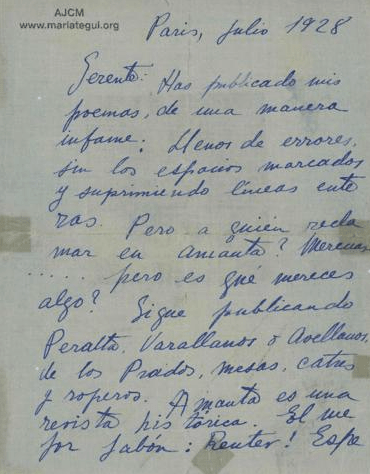 AJCM
www.mariategui.org
Paris, julio 1928
Gerente: Has publicado mis
poemas, de una manera
infame: Llenos de errores,
sin los espacios marcados
y suprimiendo líneas ente
ras. Pero a quién recla
mar en Amauta? Mereces
..... pero es qué mereces
algo? Sigue publicando
Peralta, Varallanos o Avellanos,
de los Prados, mesas, catres
y roperos. Amauta es una
revista histórica. El me
jor jabón: Reuter! Espe